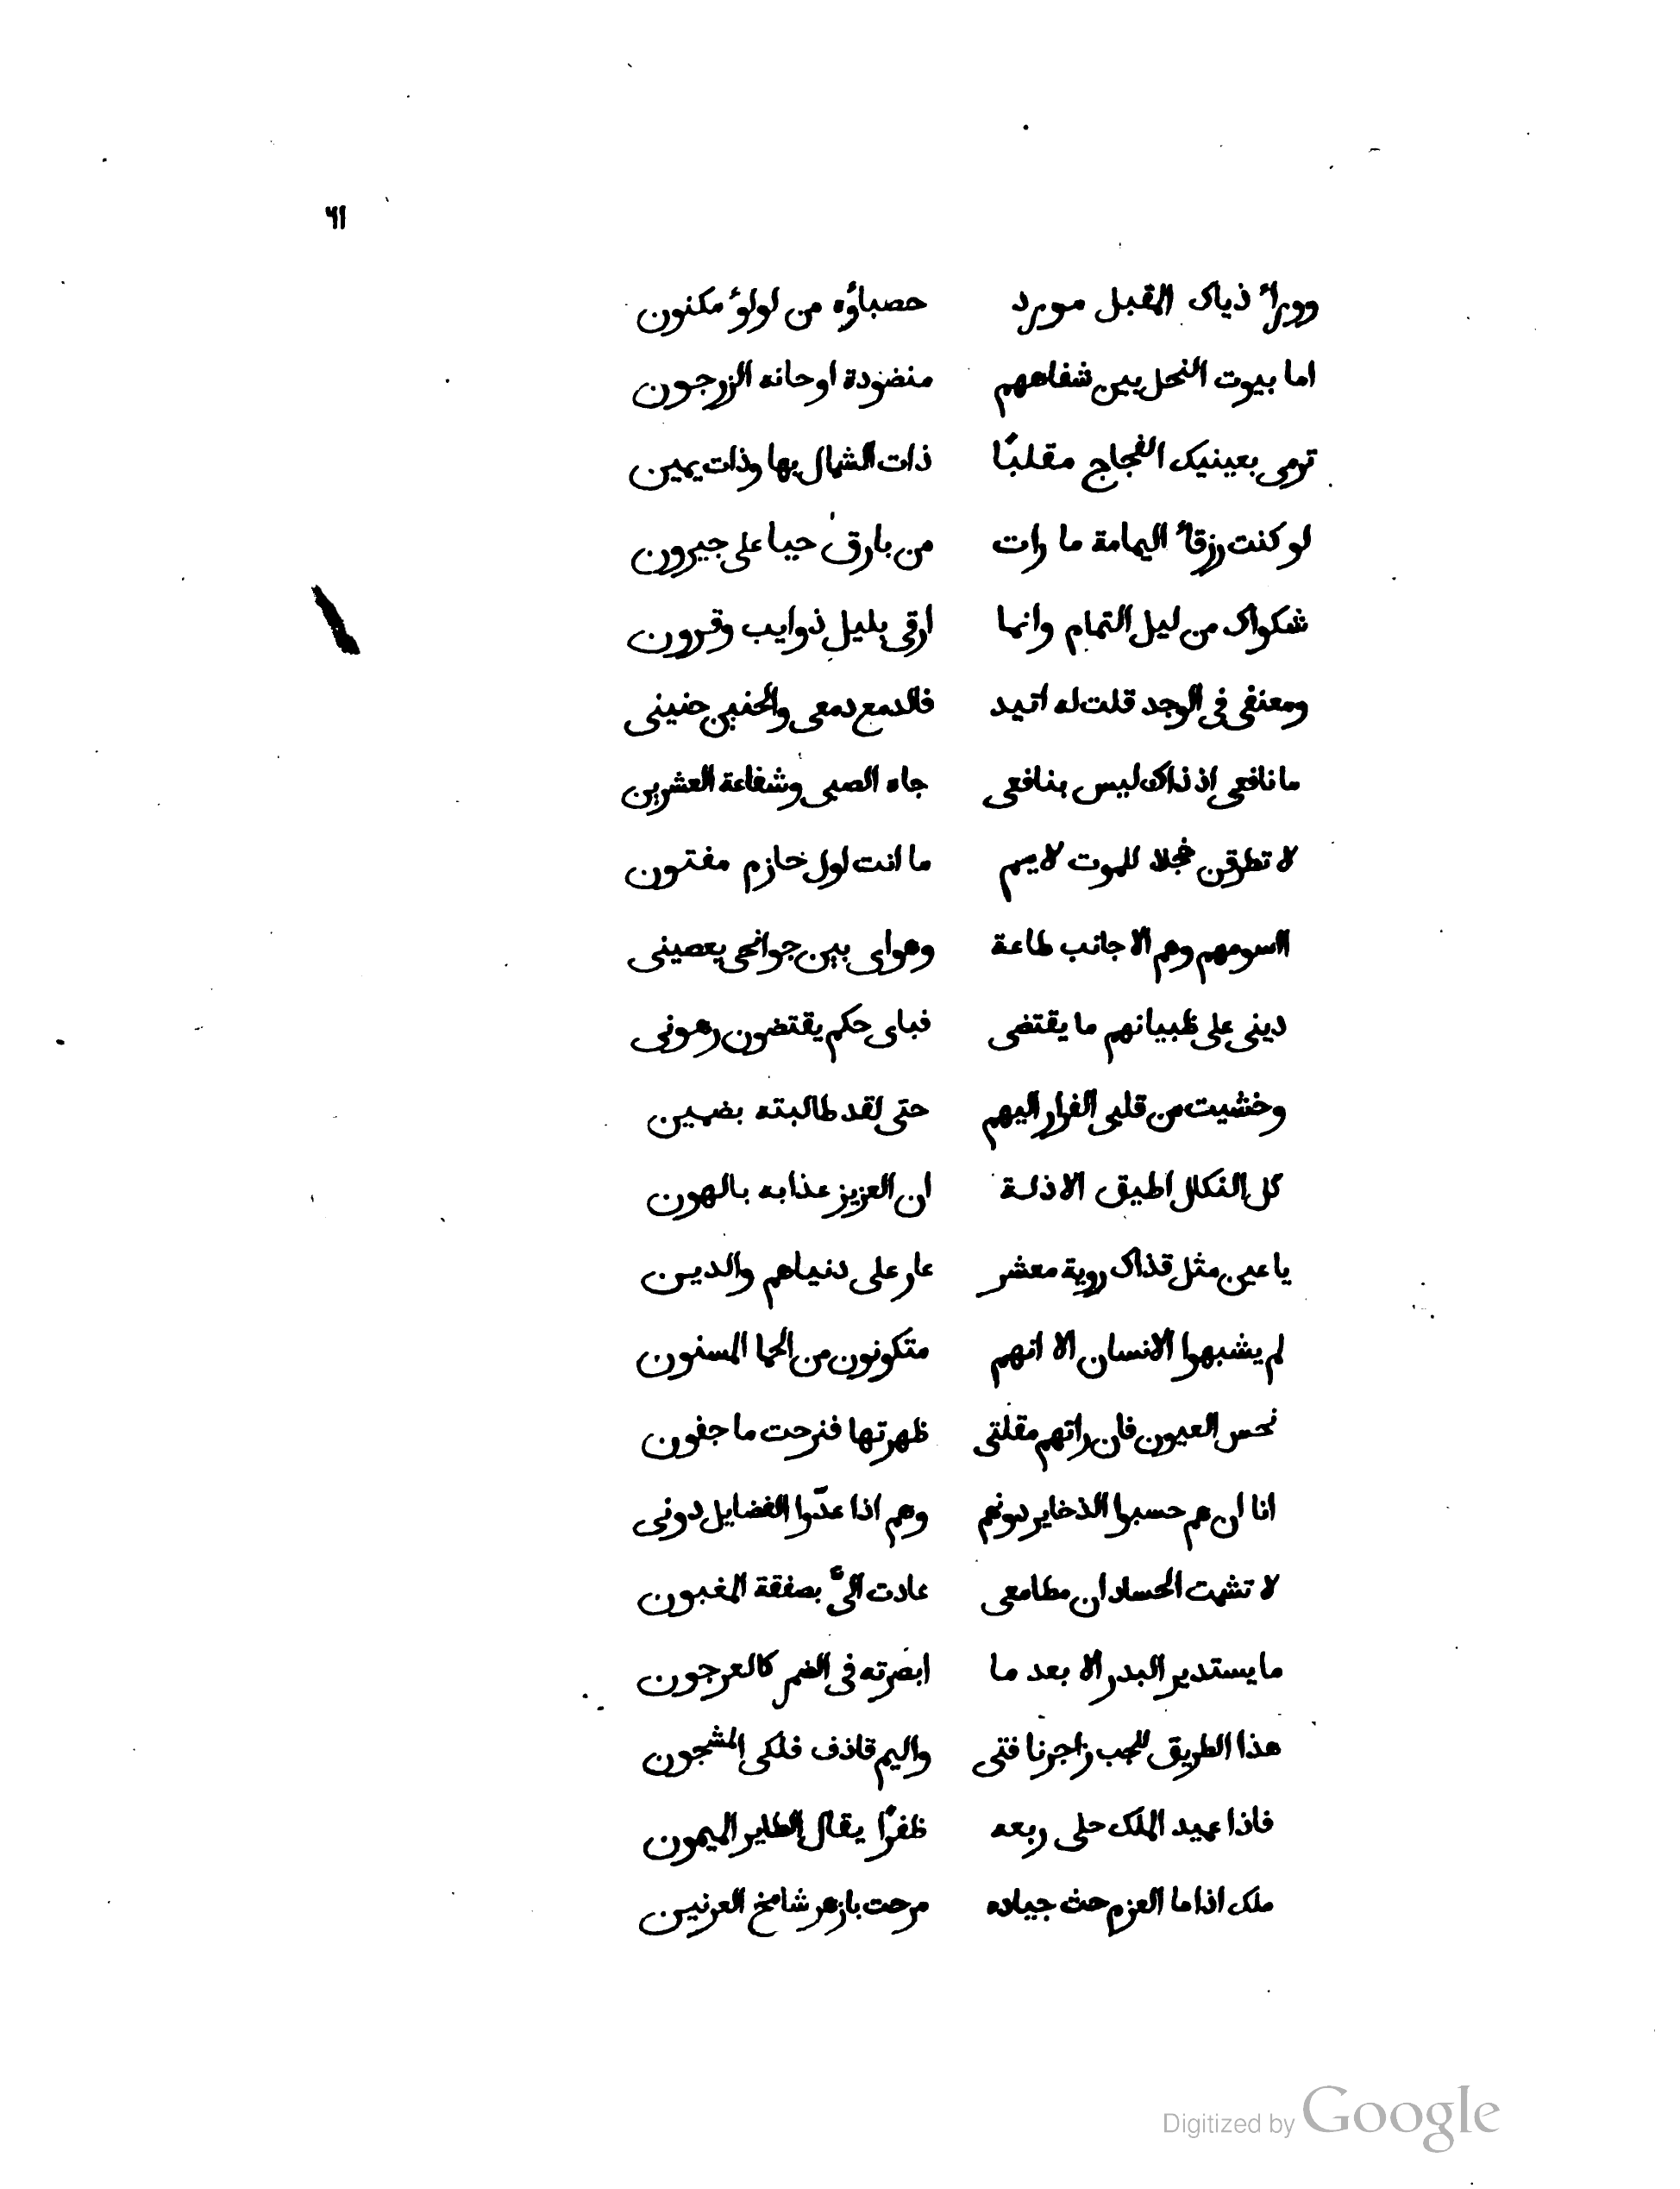 ٦١
وورائ ذياك المقبل مورد حصباؤه من لولؤ مكنون
اما بيوت النحل بين شفاههم منضودة او حانه الزرجون
ترمى بعينيك الفجاج مقلبًا ذات الشمال بها وذات يمين
لو كنت زرقائ اليمامة ما رات من بارق حيا على جيرون
شكواك من ليل التمام وانما ارقى بليل ذوايب وقرون
ومعنفى فى الوجد قلت له اتيد فالدمع دمعى والحنين حنينى
ما نافعى اذ ذاك ليس بنافعى جاه الصبى وشفاعة العشرين
لا تطرقن خجلا للموت لايم ما انت لول خازم مفتون
ااسومهم وهم الاجانب طاعة وهواى بين جوانحى يعصينى
دينى على ظبيانهم ما يقتضى فباى حكم يقتضون رهونى
وخشيت من قلبى الفرار اليهم حتى لقد طالبته بضمين
كل النكال اطيق الا ذلة ان العزيز عذابه بالهون
يا عين مثل قذاك روية معشر عار على دنياهم والدين
لم يشبهوا الانسان الا انهم متكونون من الحما المسنون
نحس العيون فان راتهم مقلتى ظهرتها فنزحت ما جفون
انا ان هم حسبوا الذخاير دونهم وهم اذا عدّوا الفضايل دونى
لا تشمت الحساد ان مطامعى عادت الىّ بصفقة المغبون
ما يستدير البدر الا بعد ما ابصرته فى الضمر كالعرجون
هذا الطريق زاجرنا فتى واليم قاذف فلكى المشجون
فاذا عميد الملك حلى ربعه ظفرًا يقال الطاير الميمون
ملك اذا ما العزم حث جياده مرحت بازهر شامخ العرنين
Digitized by Google